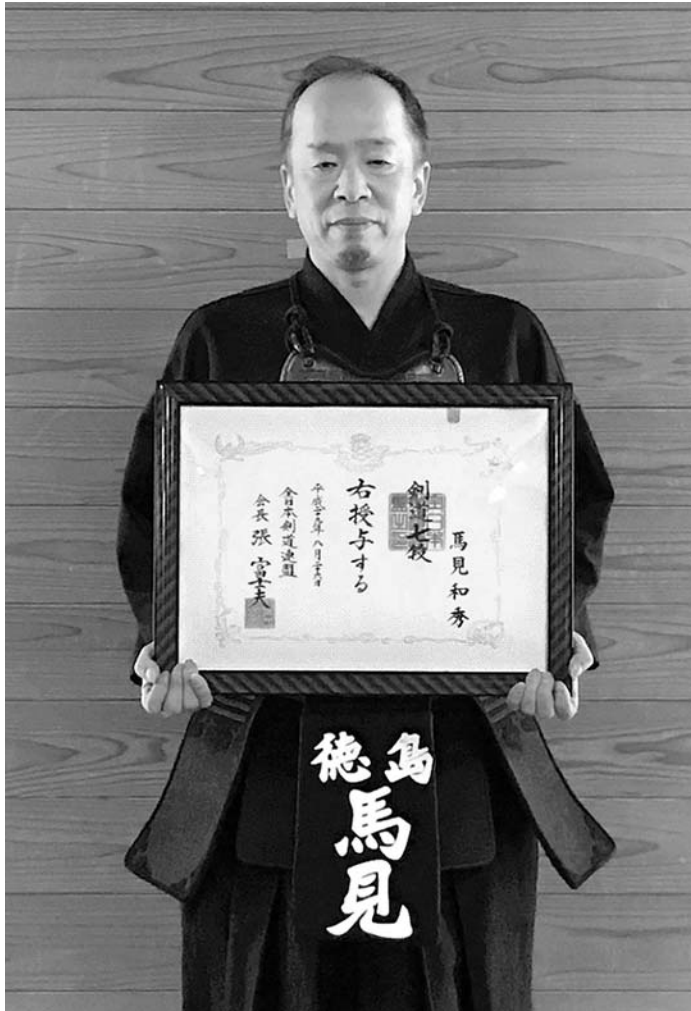 馬見和秀
剣道七段
右授与する
平成二十九年八月二十六日
全日本剣道連盟
会長 張 富士夫
徳島
馬見